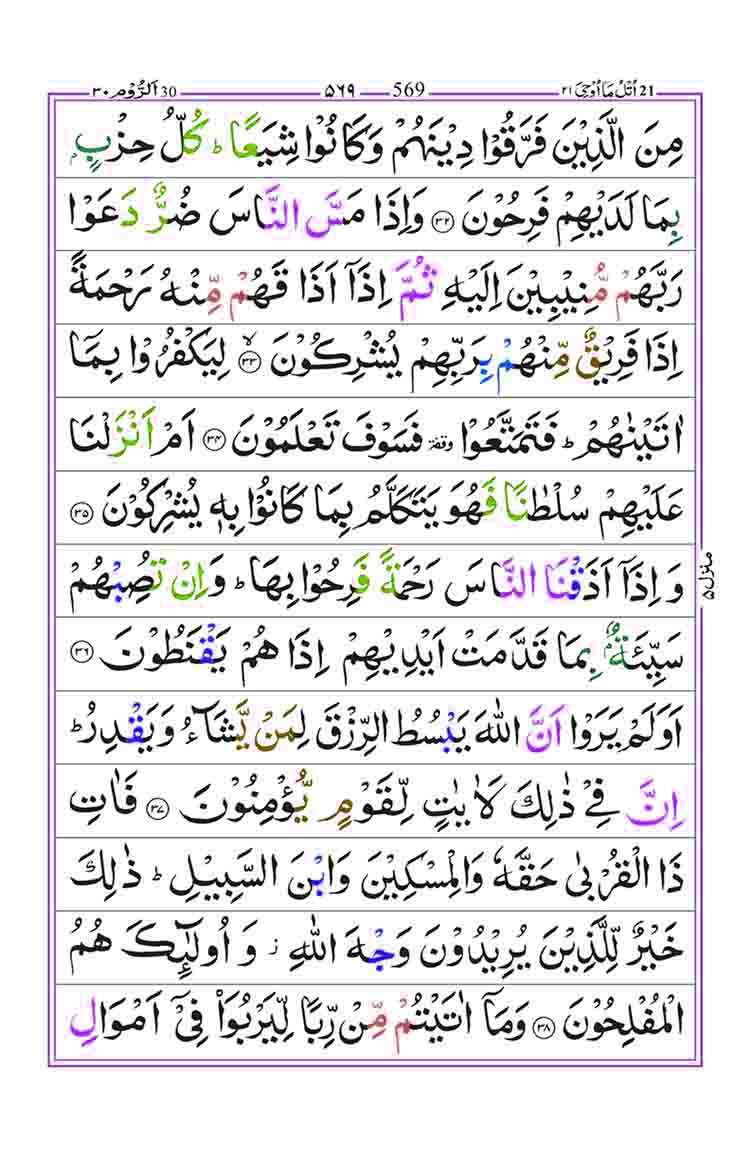 اُتْلُ مَا اُوْحِیَ ٢١ 21 569 ۵۶۹ اَلرُّوْم ٣٠ 30
مِنَ الَّذِیْنَ فَرَّقُوْا دِیْنَهُمْ وَكَانُوْا شِیَعًا ؕ كُلُّ حِزْبٍۭ
بِمَا لَدَیْهِمْ فَرِحُوْنَ ﴿۳۲﴾ وَاِذَا مَسَّ النَّاسَ ضُرٌّ دَعَوْا
رَبَّهُمْ مُّنِیْبِیْنَ اِلَیْهِ ثُمَّ اِذَاۤ اَذَا قَهُمْ مِّنْهُ رَحْمَةً
اِذَا فَرِیْقٌ مِّنْهُمْ بِرَبِّهِمْ یُشْرِكُوْنَ ﴿۳۳﴾ۙ لِیَكْفُرُوْا بِمَاۤ
اٰتَیْنٰهُمْ ؕ فَتَمَتَّعُوْا وقفة فَسَوْفَ تَعْلَمُوْنَ ﴿۳۴﴾ اَمْ اَنْزَلْنَا
عَلَیْهِمْ سُلْطٰنًا فَهُوَ یَتَكَلَّمُ بِمَا كَانُوْا بِهٖ یُشْرِكُوْنَ ﴿۳۵﴾
وَ اِذَاۤ اَذَقْنَا النَّاسَ رَحْمَةً فَرِحُوْا بِهَا ؕ وَاِنْ تُصِبْهُمْ
سَیِّئَةٌۢ بِمَا قَدَّمَتْ اَیْدِیْهِمْ اِذَا هُمْ یَقْنَطُوْنَ ﴿۳۶﴾
اَوَلَمْ یَرَوْا اَنَّ اللّٰهَ یَبْسُطُ الرِّزْقَ لِمَنْ یَّشَآءُ وَیَقْدِرُ ؕ
اِنَّ فِیْ ذٰلِكَ لَاٰیٰتٍ لِّقَوْمٍ یُّؤْمِنُوْنَ ﴿۳۷﴾ فَاٰتِ
ذَا الْقُرْبٰی حَقَّهٗ وَالْمِسْكِیْنَ وَابْنَ السَّبِیْلِ ؕ ذٰلِكَ
خَیْرٌ لِّلَّذِیْنَ یُرِیْدُوْنَ وَجْهَ اللّٰهِ ؗ وَ اُولٰٓئِكَ هُمُ
الْمُفْلِحُوْنَ ﴿۳۸﴾ وَمَاۤ اٰتَیْتُمْ مِّنْ رِّبًا لِّیَرْبُوَا۠ فِیْۤ اَمْوَالِ
منزل ۵